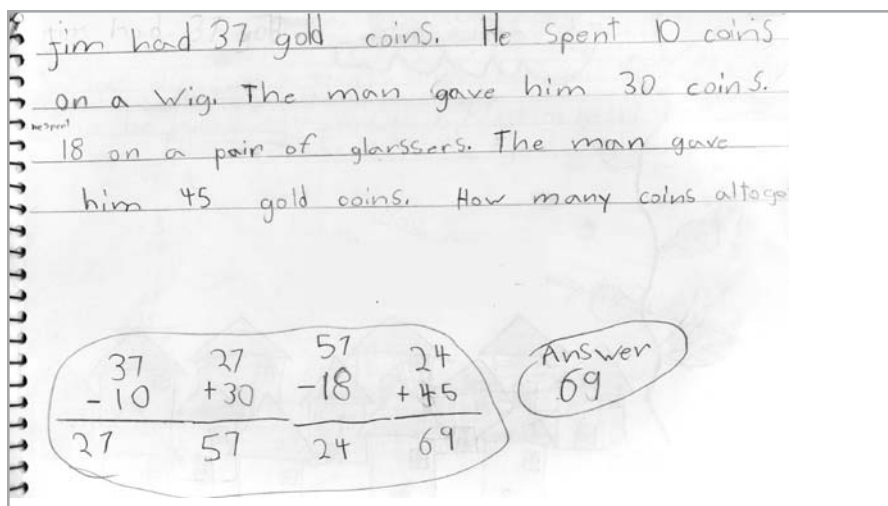 Jim had 37 gold coins. He spent 10 coins
on a wig. The man gave him 30 coins.
he spent
18 on a pair of glarssers. The man gave
him 45 gold coins. How many coins altoge
37 27 57 24
-10 +30 -18 +45
27 57 24 69
Answer
69